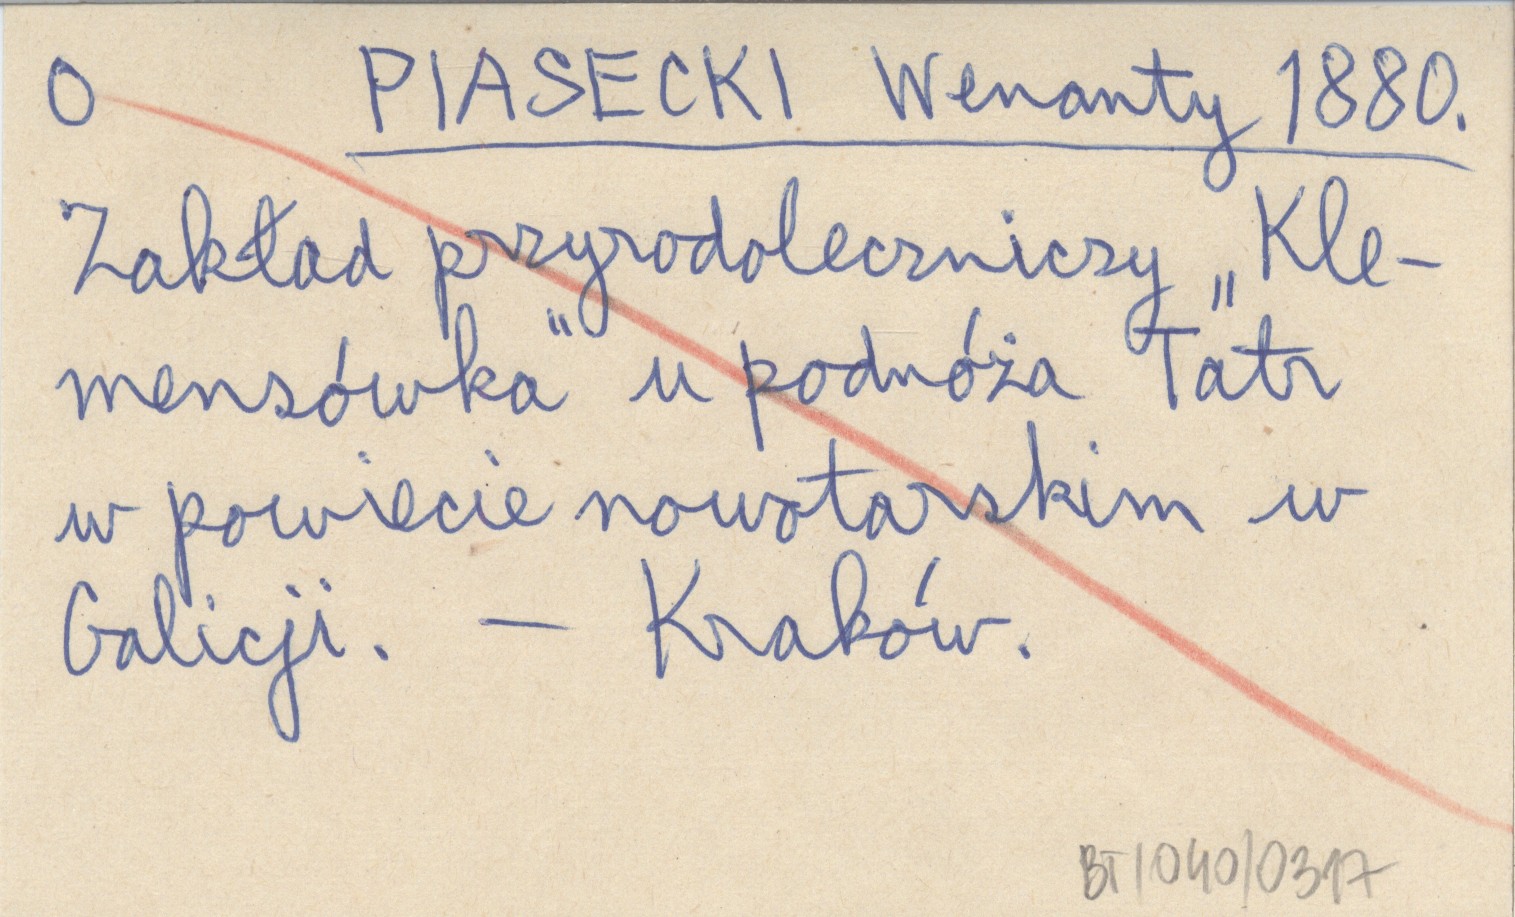 O PIASECKI Wenanty 1880.
Zakład przyrodoleczniczy „Kle-
mensówka" u podnóża Tatr
w powiecie nowotarskim w
Galicji. — Kraków.
BT/040/0317